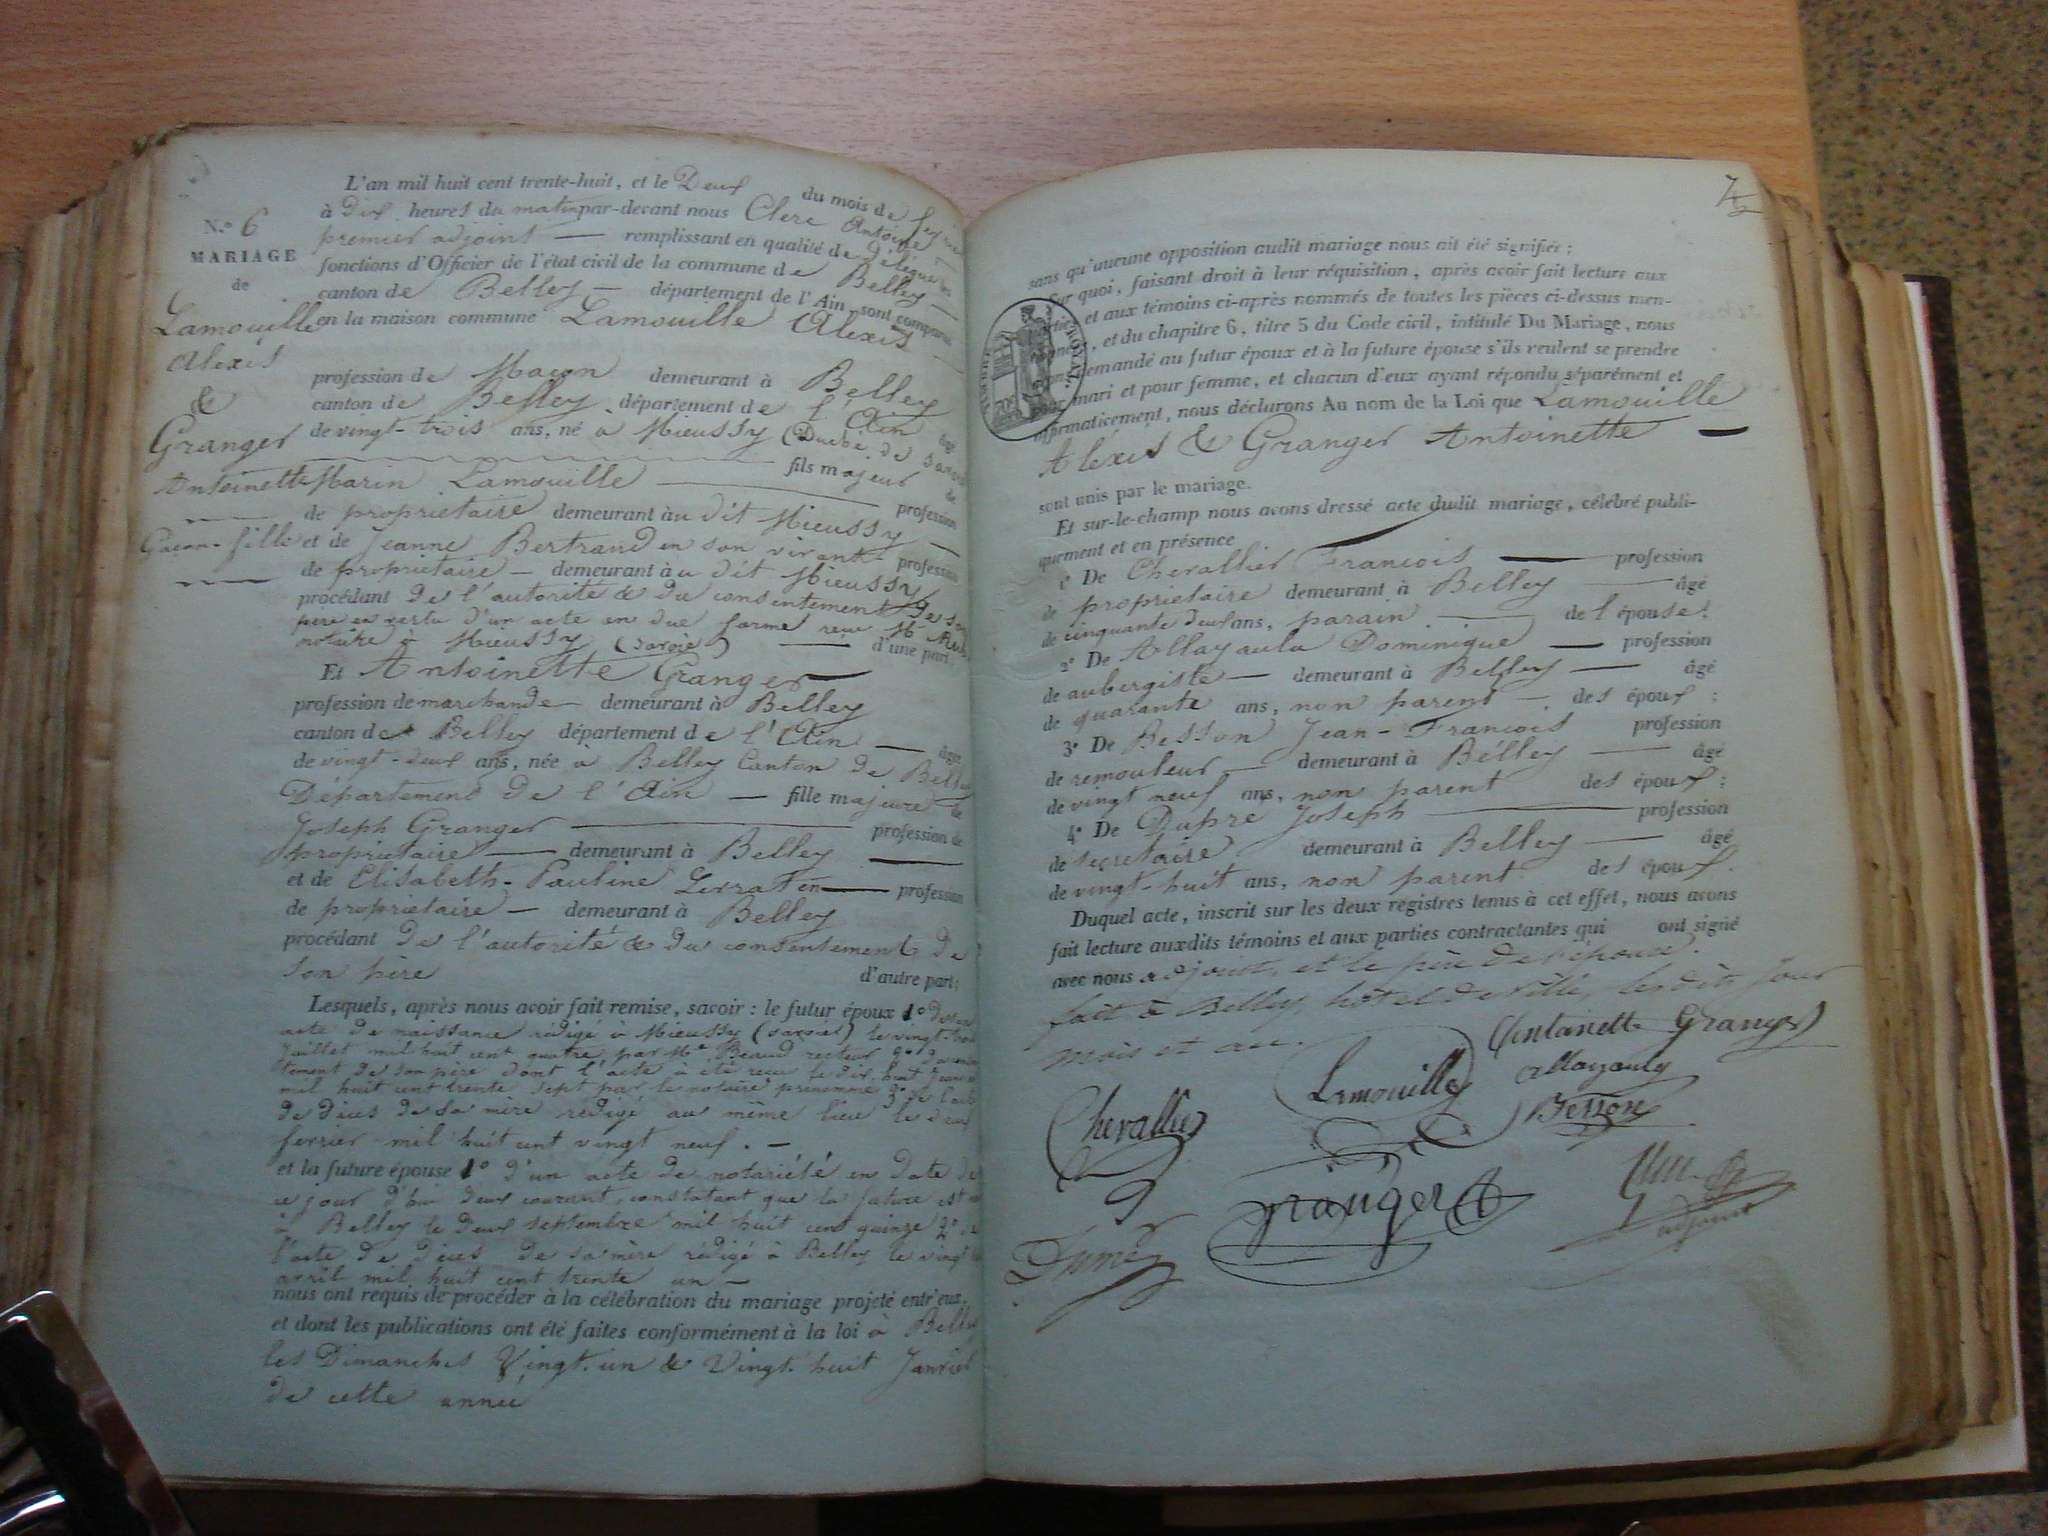 N.° 6
MARIAGE
de
Lamouille
Alexis
&
Granger
Antoinette
Garçon - fille
L'an mil huit cent trente-huit, et le Deux du mois de février
à dix heures du matin par-devant nous Clerc Antoine
premier adjoint — remplissant en qualité de Délégué les
fonctions d'Officier de l'état civil de la commune de Belley —
canton de Belley — département de l'Ain, sont comparus
en la maison commune Lamouille Alexis —
profession de Maçon demeurant à Belley
canton de Belley département de l'Ain âgé
de vingt-trois ans, né à Mieussy (Duché de Savoie)
fils majeur de
Marin Lamouille — profession
de proprietaire demeurant àu dit Mieussy —
et de Jeanne Bertrand en son vivant profession
de proprietaire — demeurant àu dit Mieussy
procédant de l'autorité & du consentement de son
père en vertu d'un acte en due forme reçu Me
notaire à Mieussy (Savoie) — d'une part.
Et Antoinette Granger —
profession de marchande — demeurant à Belley
canton de Belley département de l'Ain — âgée
de vingt-deux ans, née à Belley Canton de Belley
Département de l'Ain — fille majeure de
Joseph Granger — profession de
proprietaire — demeurant à Belley —
et de Elisabeth-Pauline — profession
de proprietaire — demeurant à Belley
procédant de l'autorité & du consentement de
son père d'autre part;
Lesquels, après nous avoir fait remise, savoir : le futur époux 1° de son
acte de naissance rédigé à Mieussy (Savoie) le vingt-trois
Juillet mil huit cent quatre, par Me Beaud recteur 2° du consen-
tement de son père dont l'acte à été reçu le dix-huit Janvier
mil huit cent trente sept par le notaire prénommé 3° de l'acte
de décès de sa mère rédigé au même lieu le deux
fevrier mil huit cent vingt neuf. —
et la future épouse 1° d'un acte de notariété en date de
ce jour d'hui deux courant, constatant que la future est née
à Belley le deux septembre mil huit cent quinze 2° de
l'acte de décès de sa mère rédigé à Belley le vingt
avril mil huit cent trente un —
nous ont requis de procéder à la célébration du mariage projeté entr'eux,
et dont les publications ont été faites conformément à la loi à Belley
les Dimanches Vingt-un & Vingt-huit Janvier
de cette année
sans qu'aucune opposition audit mariage nous ait été signifiée;
Sur quoi, faisant droit à leur réquisition, après avoir fait lecture aux
et aux témoins ci-après nommés de toutes les pièces ci-dessus men-
, et du chapitre 6, titre 5 du Code civil, intitulé Du Mariage, nous
demandé au futur époux et à la future épouse s'ils veulent se prendre
pour mari et pour femme, et chacun d'eux ayant répondu séparément et
affirmativement, nous déclarons Au nom de la Loi que Lamouille
Aléxis & Granger Antoinette —
sont unis par le mariage.
Et sur-le-champ nous avons dressé acte dudit mariage, célébré publi-
quement et en présence
1° De Chevallier François — profession
de proprietaire demeurant à Belley — âgé
de cinquante deux ans, parain — de l'épouse;
2° De Allayaula Dominique — profession
de aubergiste — demeurant à Belley — âgé
de quarante ans, non parent — des époux;
3° De Besson Jean-François profession
de remouleur — demeurant à Belley — âgé
de vingt neuf ans, non parent des époux;
4° De Dupré Joseph — profession
de secretaire demeurant à Belley — âgé
de vingt-huit ans, non parent des époux.
Duquel acte, inscrit sur les deux registres tenus à cet effet, nous avons
fait lecture auxdits témoins et aux parties contractantes qui ont signé
avec nous adjoint, et le père de l'épouse.
fait à Belley, hôtel de ville, les dits jour
mois et an.
Antoinette Granger
Lamouille
allayaula
Chevallier
Besson
Granger
adjoint
TIMBRE ROYAL